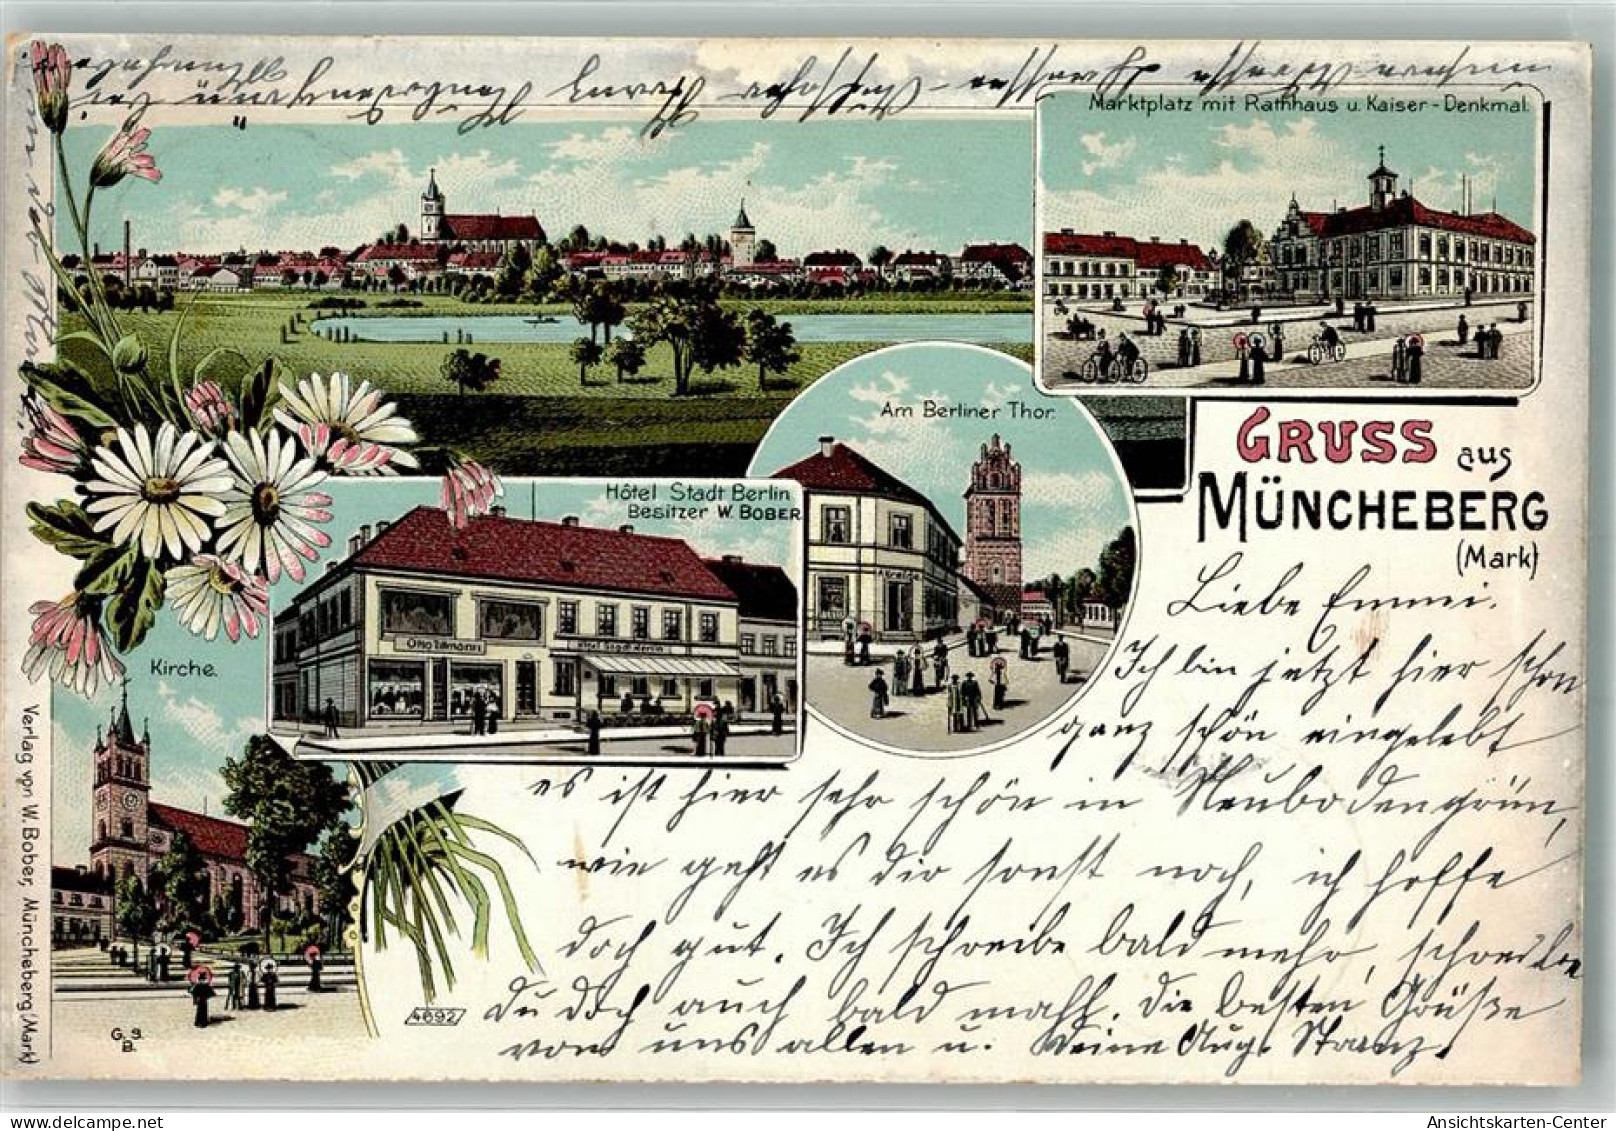 Marktplatz mit Rathhaus u. Kaiser-Denkmal.
Am Berliner Thor.
GRUSS aus
MÜNCHEBERG
(Mark)
Hôtel Stadt Berlin
Besitzer W. BOBER
Otto Tilmann
Hôtel Stadt Berlin
Kirche.
Verlag von W. Bober, Müncheberg (Mark)
G. 9.
B.
4692
Liebe Emmi.
Ich bin jetzt hier schon
ganz schön eingelebt
es ist hier sehr schön in Neubodengrün,
wie geht es dir sonst noch, ich hoffe
doch gut. Ich schreibe bald mehr, schreibe
du doch auch bald mahl. Die besten Grüße
von uns allen u. Deine Aug. Stranz.
Ansichtskarten-Center